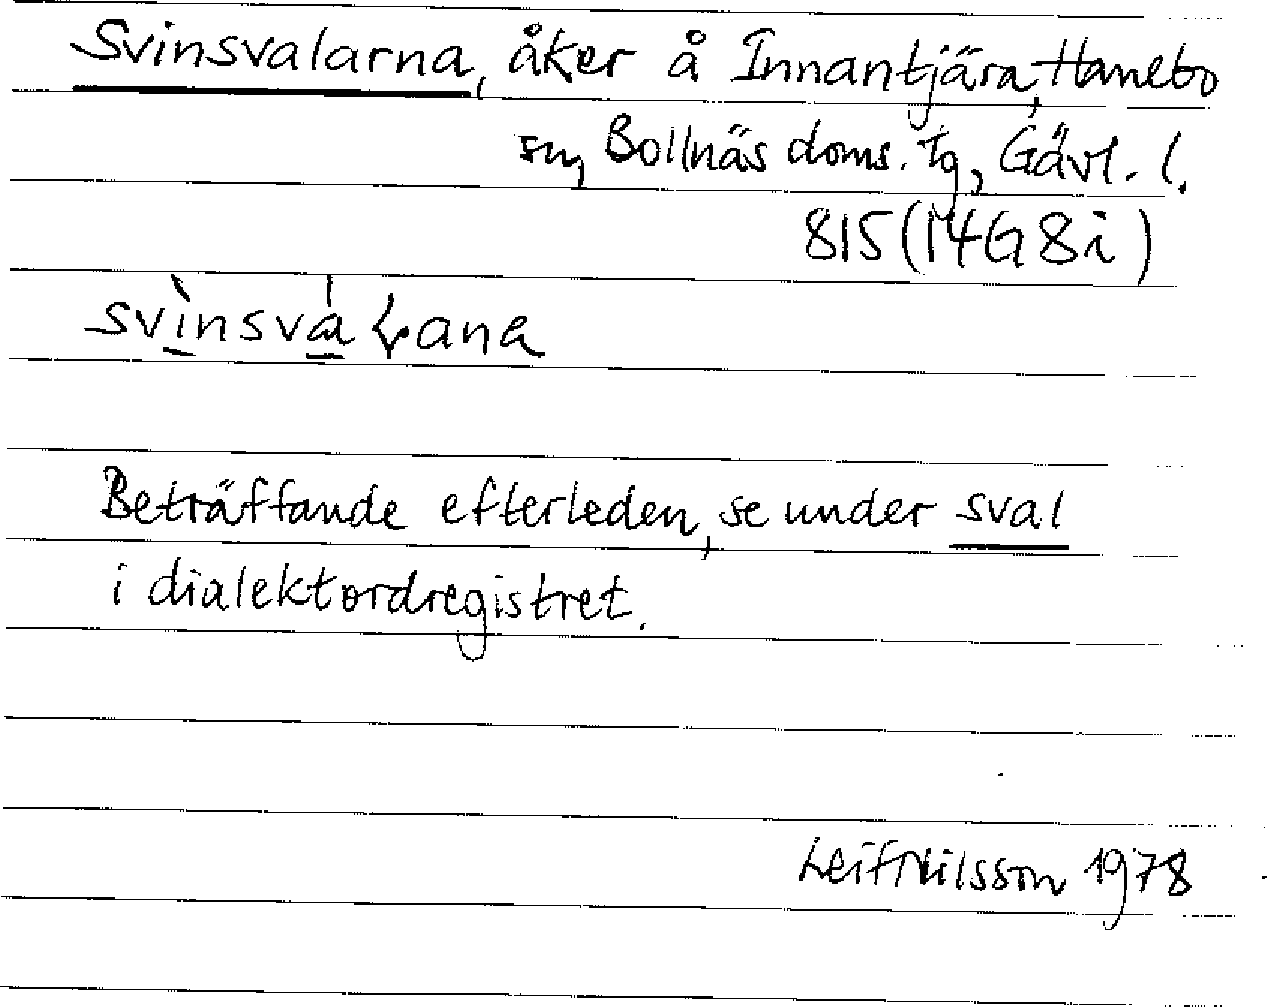 Svinsvalarna, åker å Innantjära, Hanebo
sn, Bollnäs doms. tg, Gävl. l.
815 (14G 8i)
Beträffande efterleden, se under sval
i dialektordregistret.
Leif Nilsson 1978